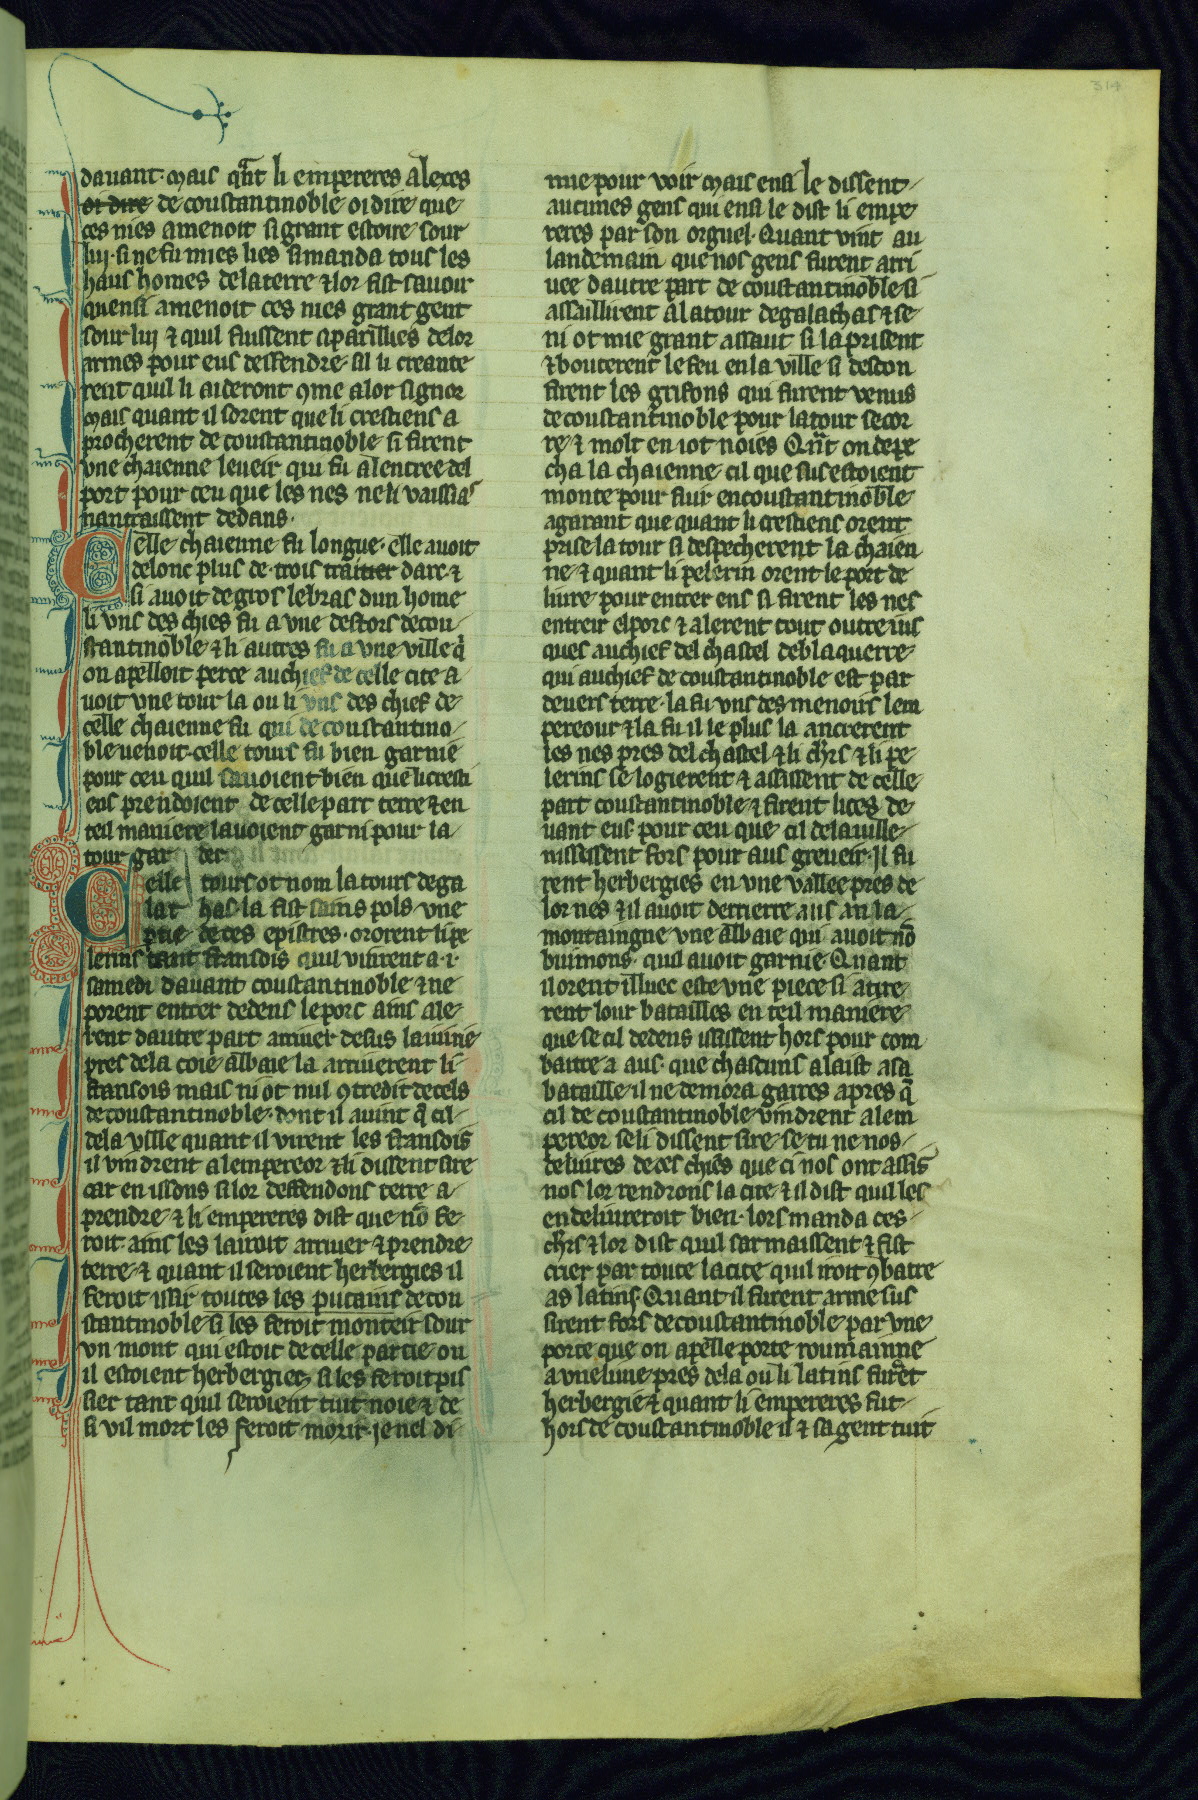 314
davant· mais qant li empereres alexes
oi dire de coustantinoble oi dire que
ces nies amenoit si grant estoire sour
lui· si ne fu mies lies si manda tous les
haus homes de la terre ⁊ lor fist savoir
quensi amenoit ces nies grant gent
sour lui ⁊ quil fussent aparillies de lor
armes pour eus deffendre· sil li creante
rent quil li aideront ꝯme a lor signor
mais quant il sorent que li crestiens a
procherent de coustantinoble si firent
une chaienne leveir qui fu a lentree del
port pour ceu que les nes ne li vaissias
nantraissent dedans·
Celle chaienne fu longue· elle avoit
de lonc plus de trois traitier darc· ⁊
si avoit de gros le bras dun home
li uns des chies fu a une destors de cou
stantinoble ⁊ li autres fu a une ville q
on apelloit perce au chief de celle cite a
voit une tour la ou li uns des chief de
celle chaienne fu qui de coustantino
ble venoit· celle tours fu bien garnie
pour ceu quil savoient bien que li cresti
ens prendoient de celle part terre ⁊ en
teil maniere lavoient garni pour la
tour gar der
Ceille tours ot nom la tours de ga
lat has· la fist sains pols une
ptie de ces epistres· or orent li pe
lerins tant fransois quil vinrent a·i·
samedi davant coustantinoble ⁊ ne
porent entrer dedens le porc ains ale
rent dautre part arriver desus la viné
pres de la coie abbaie la arriverent li
fransois mais ni ot nul ꝯtredit de cels
de coustantinoble· dont il avint q cil
de la ville quant il virent les fransois
il vindrent a lempereor ⁊ li dissent sire
car en issons si lor deffendons terre a
prendre· ⁊ li empereres dist que nō fe
roit· ains les lairoit arriver ⁊ prendre
terre· ⁊ quant il seroient herbergies il
feroit issir toutes les putains de cou
stantinoble· si les feroit monteir sour
un mont qui estoit de celle partie ou
il estoient herbergiez si les feroit pis
sier tant quil seroient tuit noie ⁊ de
si vil mort les feroit morir· je nel di
mie pour voir mais ensi le dissent
aucunes gens qui ensi le dist li empe
reres par son orguel· Quant vint au
landemain que nos gens furent arri
vee dautre part de coustantinoble si
assaillirent a la tour de galathas ⁊ se
ni ot mie grant assaut si la prisent
⁊ bouterent le feu en la ville si descon
firent les grifons qui furent venus
de coustantinoble pour la tour secor
re· ⁊ molt en i ot noies Qn̄t on depe
cha la chaienne cil que sus estoient
monte pour fuir en coustantinoble
agarant que quant li crestiens orent
prise la tour si despecherent la chaien
ne· ⁊ quant li pelerin orent le port de
livre pour entrer ens si firent les nes
entreir el porc ⁊ alerent tout outre jus
ques au chief del chastel de blaquerre
qui au chief de coustantinoble est par
devers terre· la fu uns des menoirs lem
pereour ⁊ la fu il le plus la ancrerent
les nes pres del chastel ⁊ li chrs ⁊ li pe
lerins se logierent ⁊ assissent de celle
part coustantinoble ⁊ firent lices de
vant eus pour ceu que cil de la ville
nississent fors pour aus greveir· Il fu
rent herbergies en une vallee pres de
lor nes ⁊ il avoit derrierre aus an la
montaingne une abbaie qui avoit nō
buimons· quil avoit garnie Quant
il orent illuec este une piece si atire
rent lour batailles en teil maniere
que se cil dedens ississent hors pour com
batre a aus· que chascuns alaist a sa
bataille· il ne demora garres apres q̄
cil de coustantinoble vindrent a lem
pereor se li dissent sire· se tu ne nos
delivres de ces chiēs que ci nos ont assis
nos lor rendrons la cite ⁊ il dist quil les
en deliverroit bien· lors manda ces
chrs ⁊ lor dist quil sarmaissent ⁊ fist
crier par toute la cite quil iroit ꝯbatre
as latins· Quant il furent arme sus
sirent fors de coustantinoble par une
porte que on apelle porte roumainne
a une live pres de la ou li latins furēt
herbergie ⁊ quant li empereres fut
hors de coustantinoble il ⁊ sa gent tuit